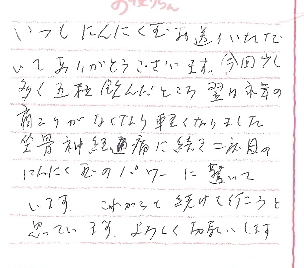 のもりちゃん
いつもにんにく玉お送りいただ
いてありがとうございます。今回少し
多く五粒飲んだところ翌日永年の
肩こりがなくなり軽くなりました
坐骨神経痛に続き二度目の
にんにく玉のパワーに驚いて
います。これからも続けて行こうと
思っています。よろしくお願いします